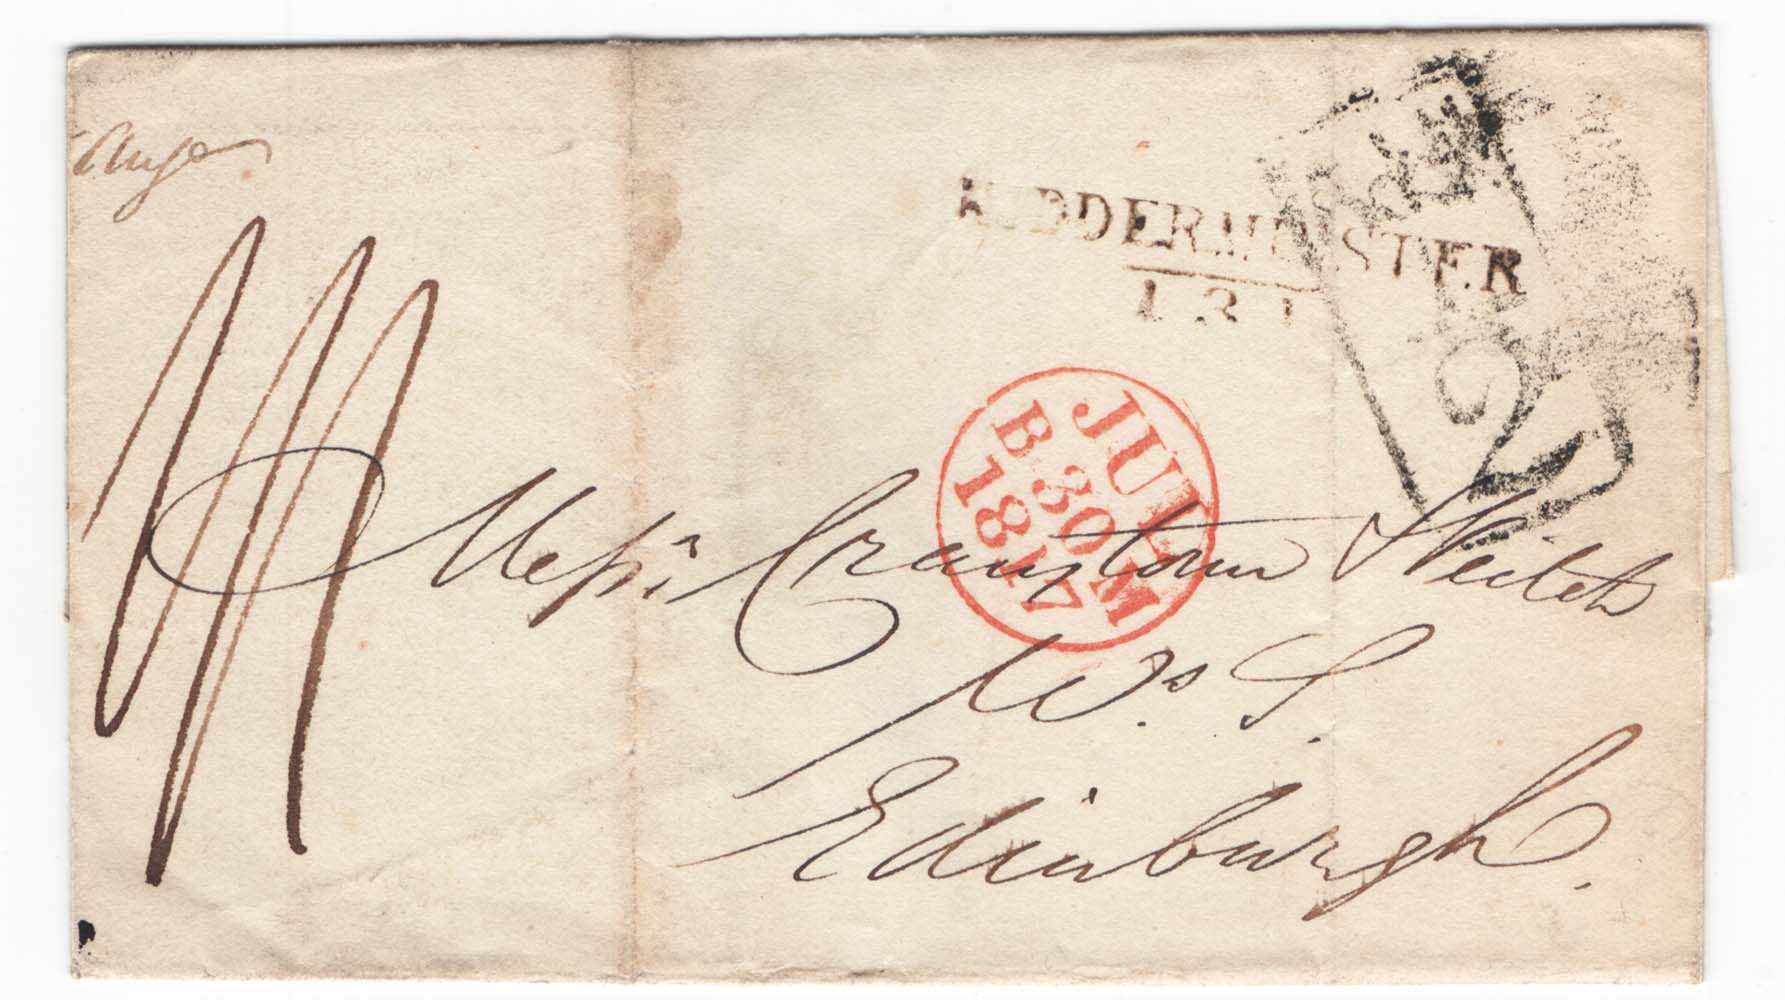 KIDDERMINSTER
131
JUL
B 30 M
1817
Messrs Cranstoun & Veitch
Ws. S.
Edinburgh.